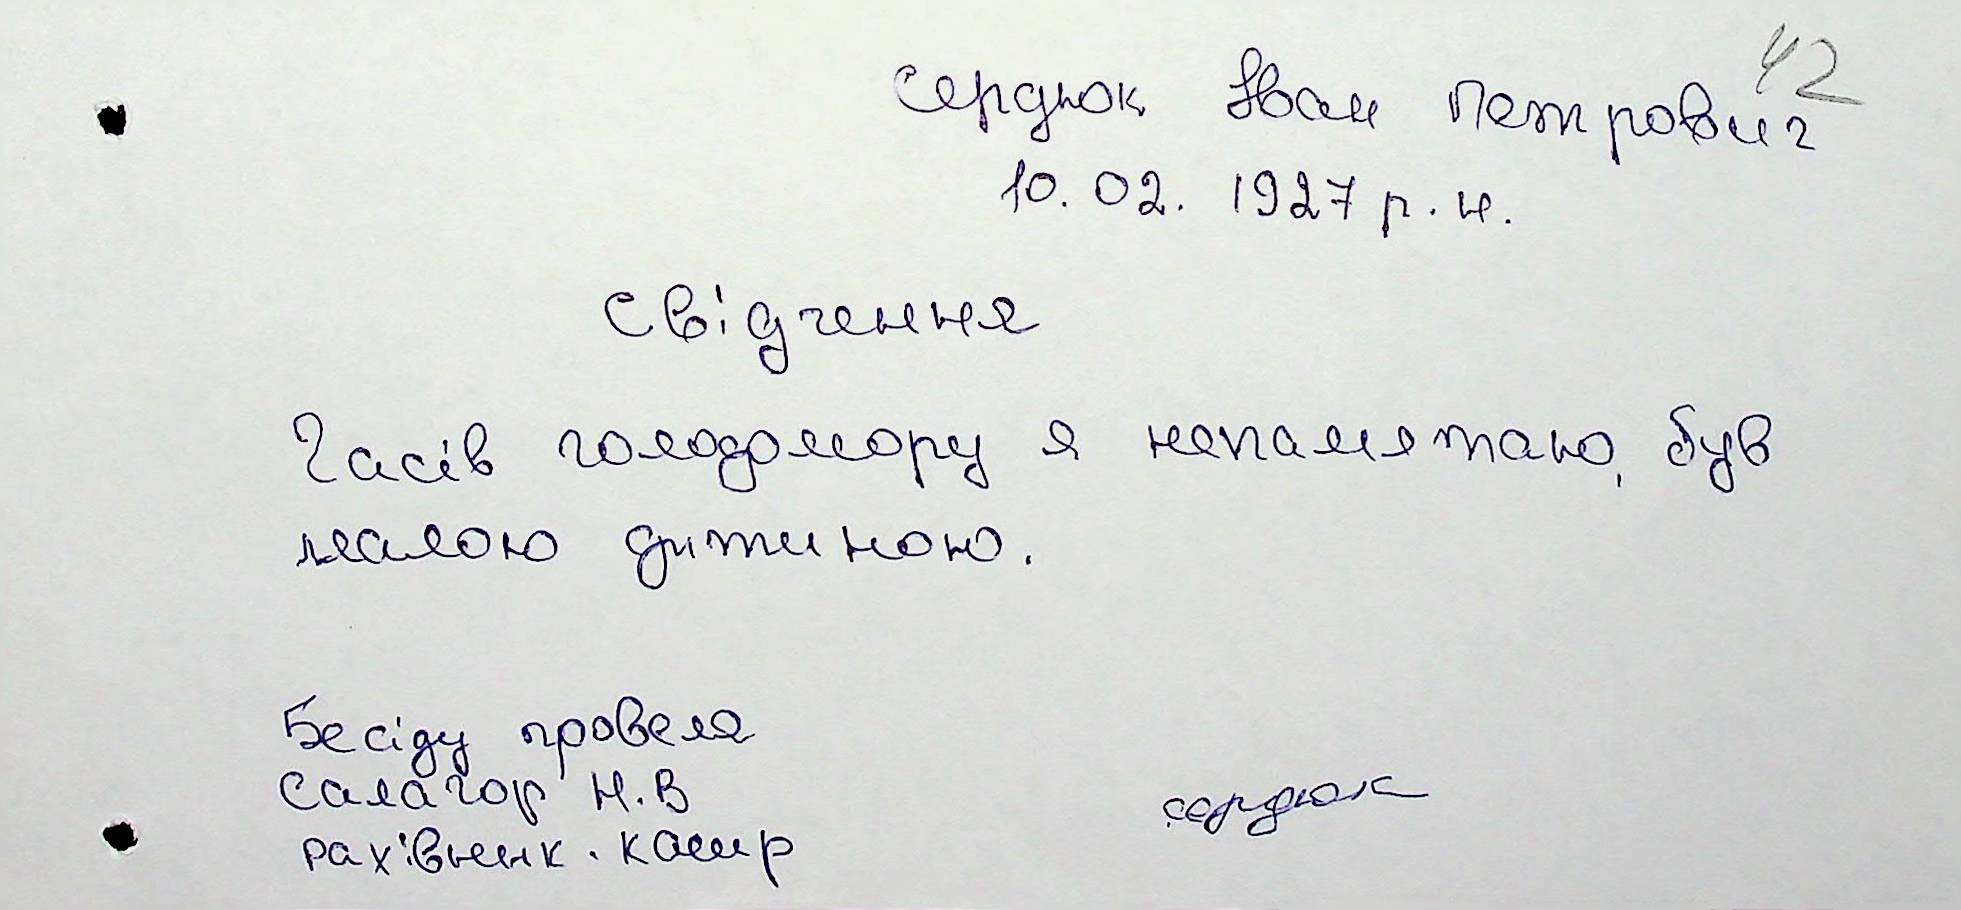 42
Сердюк Іван Петрович
10.02.1927 р.н.
Свідчення
Часів голодомору я непамятаю, був
малою дитиною.
Бесіду провела
Салагор Н.В
рахівник. касир
Сердюк